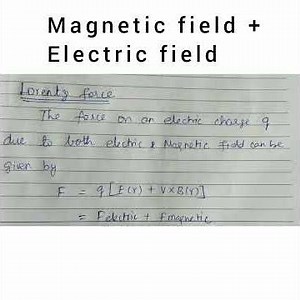 Magnetic field +
Electric field
Lorentz force
The force on an electric charge q
due to both electric & Magnetic field can be
given by
F = q [E(r) + V×B(r)]
= Felectric + Fmagnetic